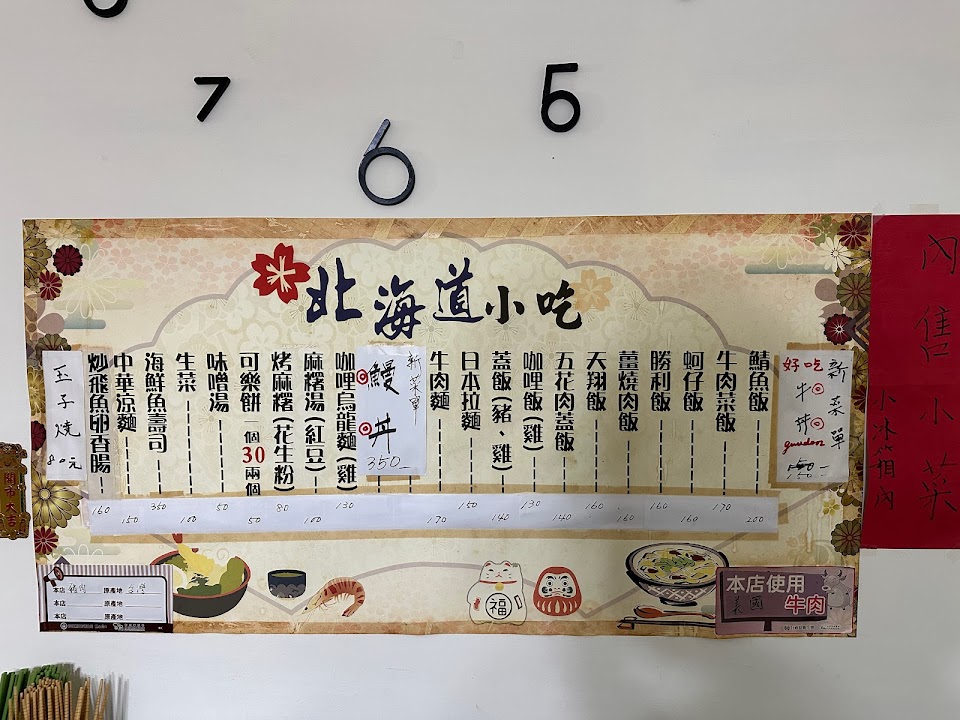 8
7
5
6
北海道小吃
新菜單
好吃
牛丼
gyudon
150-
鯖魚飯
200
牛肉菜飯
170
蚵仔飯
160
勝利飯
160
薑燒肉飯
160
天翔飯
160
五花肉蓋飯
140
咖哩飯(雞)
130
蓋飯(豬、雞)
140
日本拉麵
150
牛肉麵
170
新菜單
鰻丼
350-
咖哩烏龍麵(雞
130
麻糬湯(紅豆)
100
烤麻糬(花生粉)
80
可樂餅一個30兩個
50
味噌湯
50
生菜
100
海鮮魚壽司
350
中華涼麵
150
炒飛魚卵香腸
160
玉子燒
80元
內售小菜
小冰箱內
開市大吉
福
本店 豬肉 原產地 台灣
本店 原產地
本店 原產地
本店使用
美國 牛肉